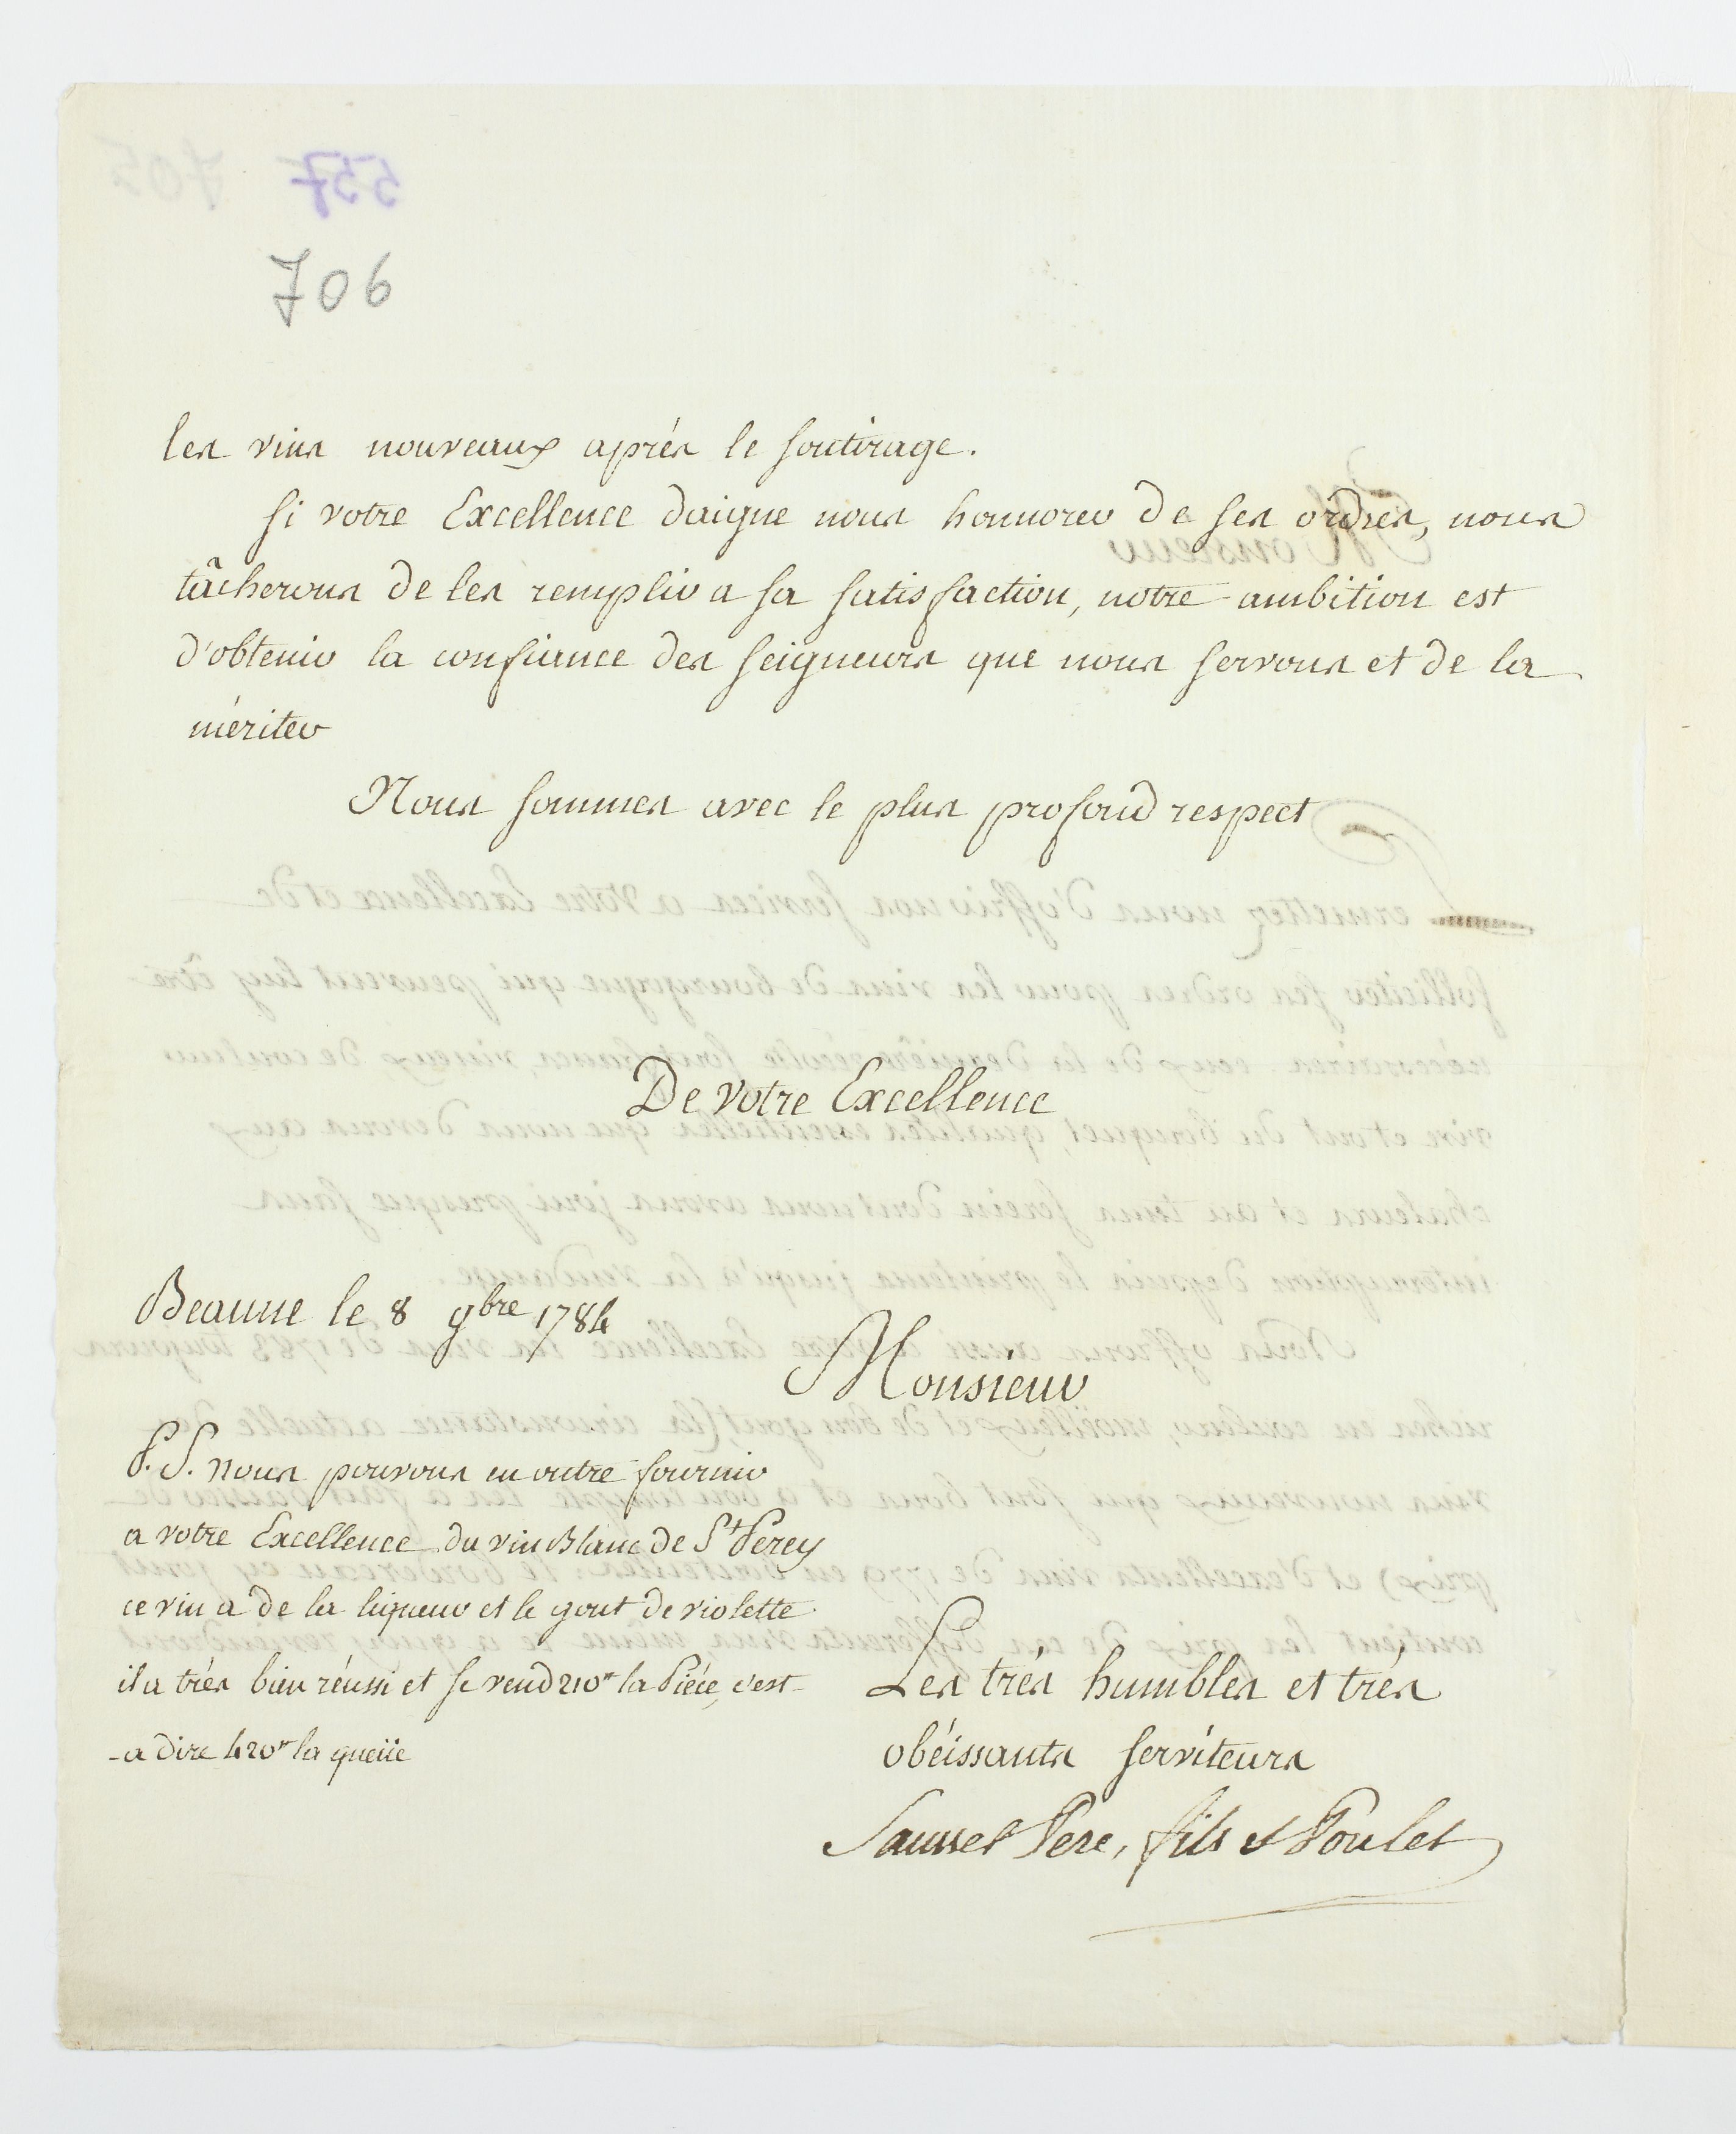 706
les vins nouveaux après le soutirage.
si votre Excellence daigne nous honnorer de ses ordres, nous
tâcherons de les remplir a sa satisfaction, notre ambition est
d'obtenir la confiance des seigneurs que nous servons et de la
mériter
Nous sommes avec le plus profond respect
De votre Excellence
Beaune le 8 9bre 1784
Monsieur
P.S. nous pouvons en outre fournir
a votre Excellence du vin Blanc de St Perey
ce vin a de la liqueur et le gout de violette.
il a très bien réussi et se vend 210tt la Piéce, c'est-
-a dire 420tt la queüe
Les très humbles et très
obéissants serviteurs
Pere, fils et Poulet